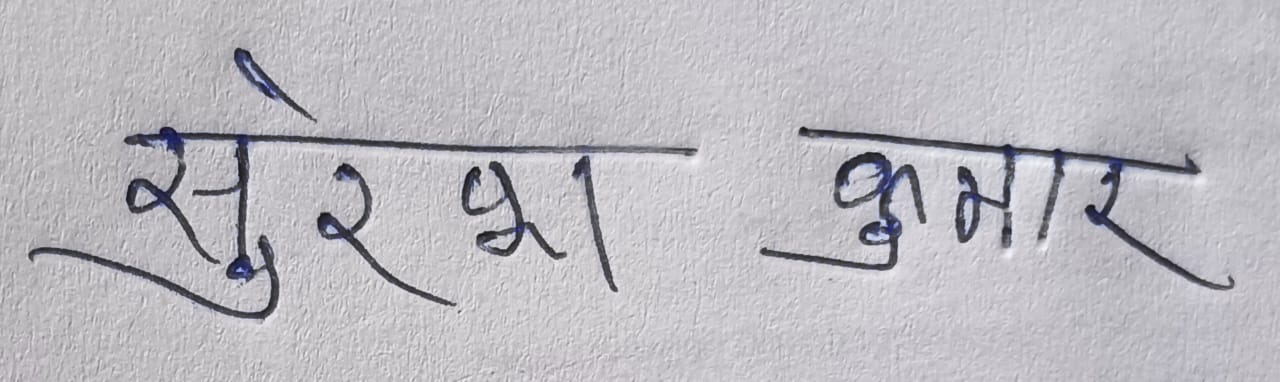 सुरेश कुमार